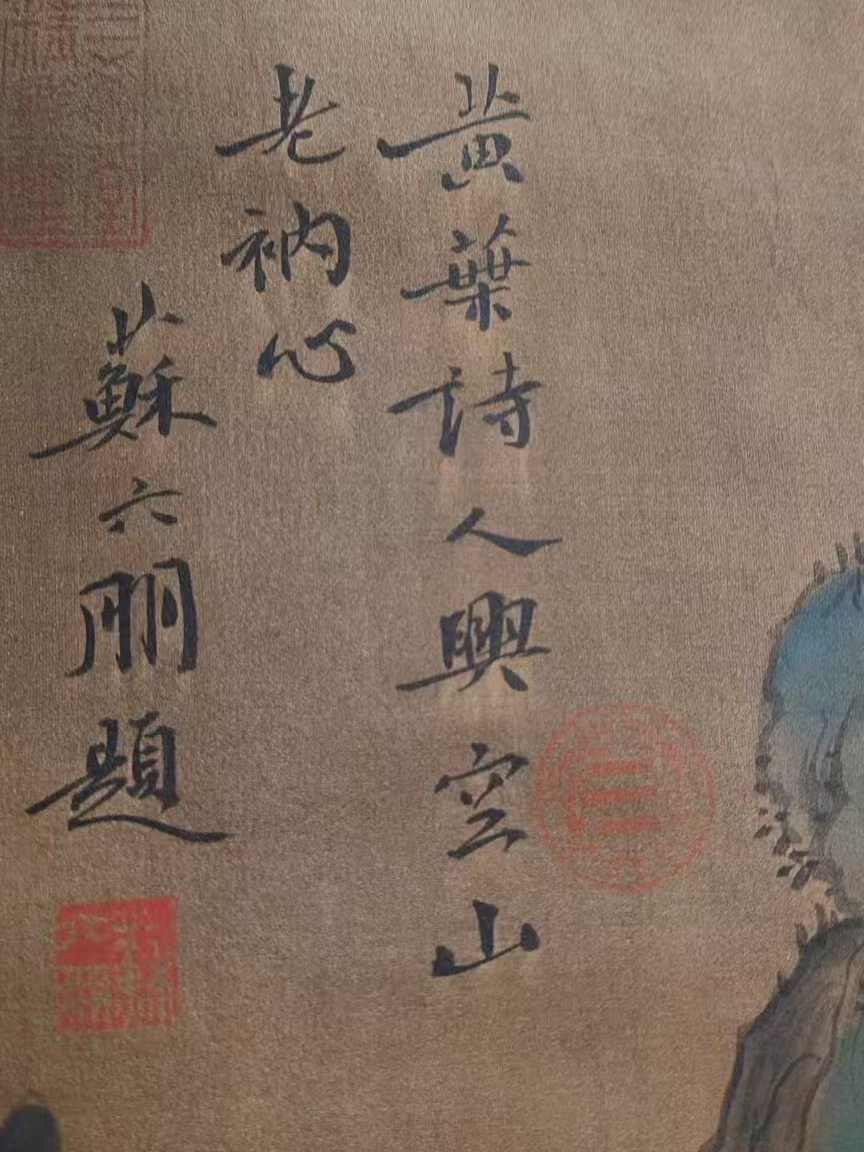 黄葉詩人興空山
老衲心
蘇六朋題